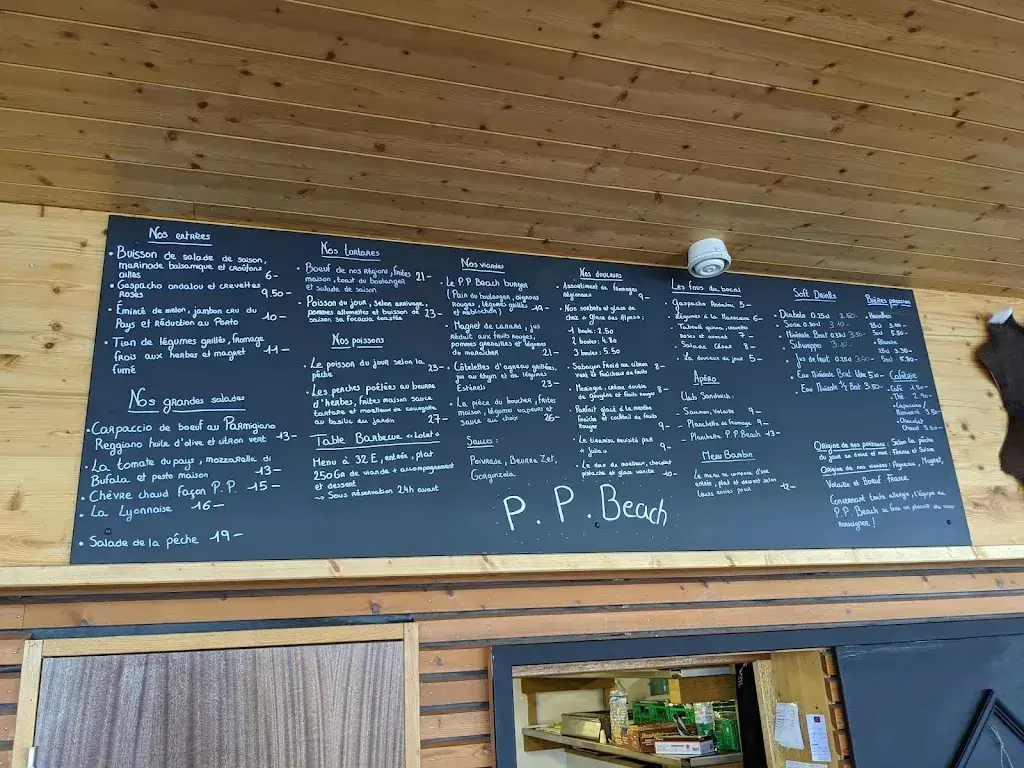 Nos entrées
• Buisson de salade de saison,
marinade balsamique et croûtons
aillés 6-
• Gaspacho andalou et crevettes
Roses 9.50-
• Émincé de melon, jambon cru du
Pays et réduction au Porto 10-
• Tian de légumes grillés, fromage
frais aux herbes et magret 11-
fumé
Nos grandes salades
• Carpaccio de boeuf au Parmigiano
Reggiano huile d'olive et citron vert 13-
• La tomate du pays, mozzarella di
Bufala et pesto maison 13-
• Chèvre chaud façon P.P. 15-
• La Lyonnaise 16-
• Salade de la pêche 19-
Nos tartares
• Boeuf de nos régions, frites 21-
maison, toast du boulanger
et salade de saison
• Poisson du jour, selon arrivage,
pommes allumettes et buisson de 23-
saison sa focaccia toastée
Nos poissons
• Le poisson du jour selon la 23-
pêche
• Les perches poêlées au beurre
d'herbes, frites maison sauce
tartare et moelleux de courgette
au basilic du jardin 27-
Table Barbecue "Lolet"
Menu à 32 E, entrée, plat
250 GR de viande + accompagnement
et dessert
~ Sous réservation 24h avant
Nos viandes
• Le P.P. Beach burger
(Pain du boulanger, oignons
Rouges, légumes grillés 19-
et reblochon)
• Magret de canard, jus
Réduit aux fruits rouges,
pommes grenailles et légumes
du maraîcher 21-
• Côtelettes d'agneau grillées,
jus au thym et de légumes
Estérel 23-
• La pièce du boucher, frites
maison, légumes vapeurs et
sauce au choix 26-
Sauces :
Poivrade, Beurre Zef,
Gorgonzola.
Nos douceurs
• Assortiment de fromages
Régionaux 9-
• Nos sorbets et glaces de
chez a glace des Alpes:
1 boule: 2.50
2 boules: 4.80
3 boules: 5.50
• Sabayon froid au citron
vert et fraîcheur de fruits 8-
• Meringue, crème double
de gruyère et fruits rouges 8-
• Parfait glacé à la menthe
fraîche et cocktail de fruits
Rouges 9-
• Le tiramisu revisité par
"Julia" 9-
• Le duo de moelleux, chocolat
pistache et glace vanille 10-
Les fous du bocal
• Gaspacho Andalou 5-
• Légumes à la Marocaine 6-
• Taboulé quinoa, crevettes
roses et avocat 7-
• Salade César 8-
• La douceur du jour 5-
Apéro
Club Sandwich:
- Saumon, Volaille 9-
- Planchette de fromage 9-
- Planchette P.P. Beach 13-
Menu Bambin
Le menu se compose d'une
entrée, plat et dessert selon
leurs envies pour 12-
Soft Drinks
• Diabolo 0.25cl 2.50-
• Soda 0.50cl 3.10-
• Minérale Bout. 0.50cl 3.50-
• Schweppes 3.10-
• Jus de fruit. 0.25cl 3.60-
• Eau Minérale Bout. Verre 5.00-
• Eau Minérale 1/2 Bout 3.50-
Bières pression
25cl 3.00-
50cl 5.50-
• Blanche
25cl 3.50-
50cl 5.90-
Caféterie
• Café 1.90-
• Thé 2.90-
• Capuccino /
Renversé 3.50-
• Chocolat
Chaud 3.50-
Origine de nos poissons : Selon la pêche
du jour en donne et mer : France et Suisse
Origine de nos viandes : Agneau, Magret,
Volaille et Boeuf : France.
Concernant toute allergie, l'équipe du
P.P. Beach se fera un plaisir de vous
renseigner !
P.P. Beach